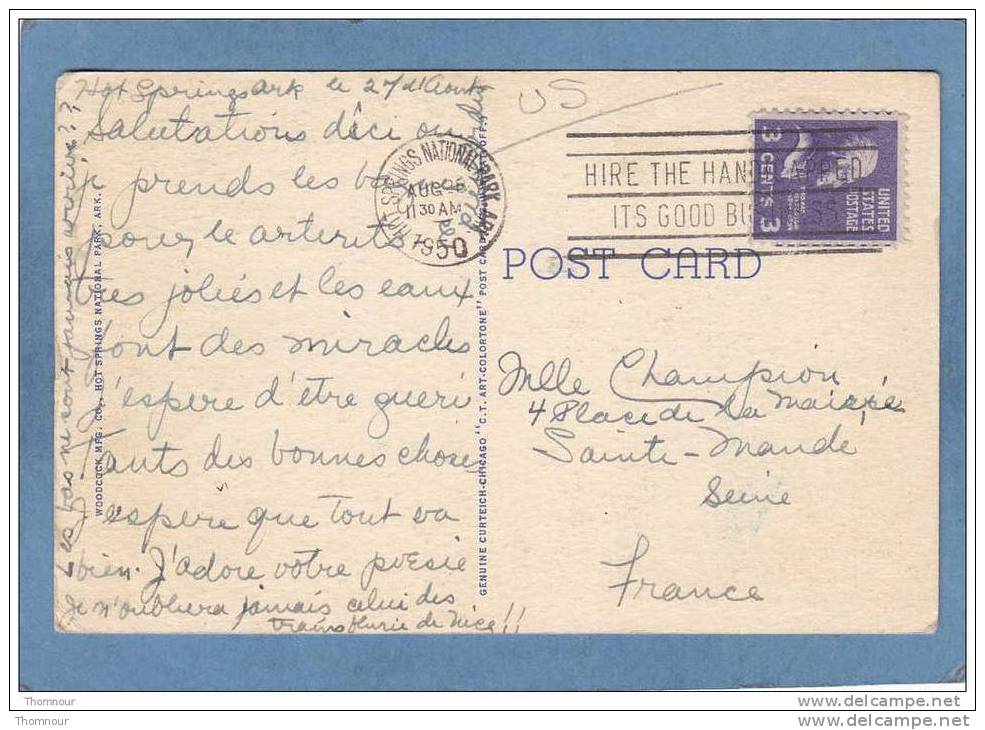 Hot Springs Ark le 27 d'Aout
Salutations d'ici ou
je prends les
pour le arterits
tres joliés et les eaux
font des miracles
j'espere d'être gueri
tants des bonnes choses
espère que tout va
bien. J'adore votre poesie
Je n'oubliera jamais celui des
de Nice!!
Les bas ne sont jamais arrivé??
WOODCOCK MFG. CO., HOT SPRINGS NATIONAL PARK, ARK.
GENUINE CURTEICH-CHICAGO "C.T. ART-COLORTONE" POST CARD
HOT SPRINGS NATIONAL PARK, ARK.
AUG
11 30 AM
1950
US
HIRE THE
ITS GOOD
UNITED
STATES
POSTAGE
3 CENTS 3
POST CARD
Mlle Champion
4 Place de La Mairie
Sainte-Mande
Seine
France
Thomnour
Thomnour
www.delcampe.net
www.delcampe.net